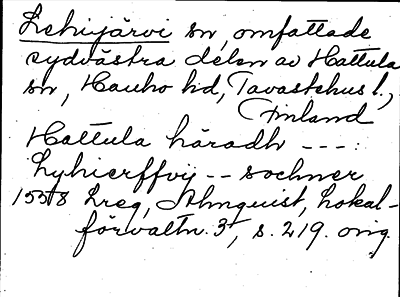 Lehijärvi sn, omfattade
sydvästra delen av Hattula
sn, Hauho hd, Tavastehus l.,
Finland
Hattula häradh ---:
Lyhierffvij -- sochner
1558 Lreg, Almquist, Lokal-
förvaltn. 3, s. 219. orig.